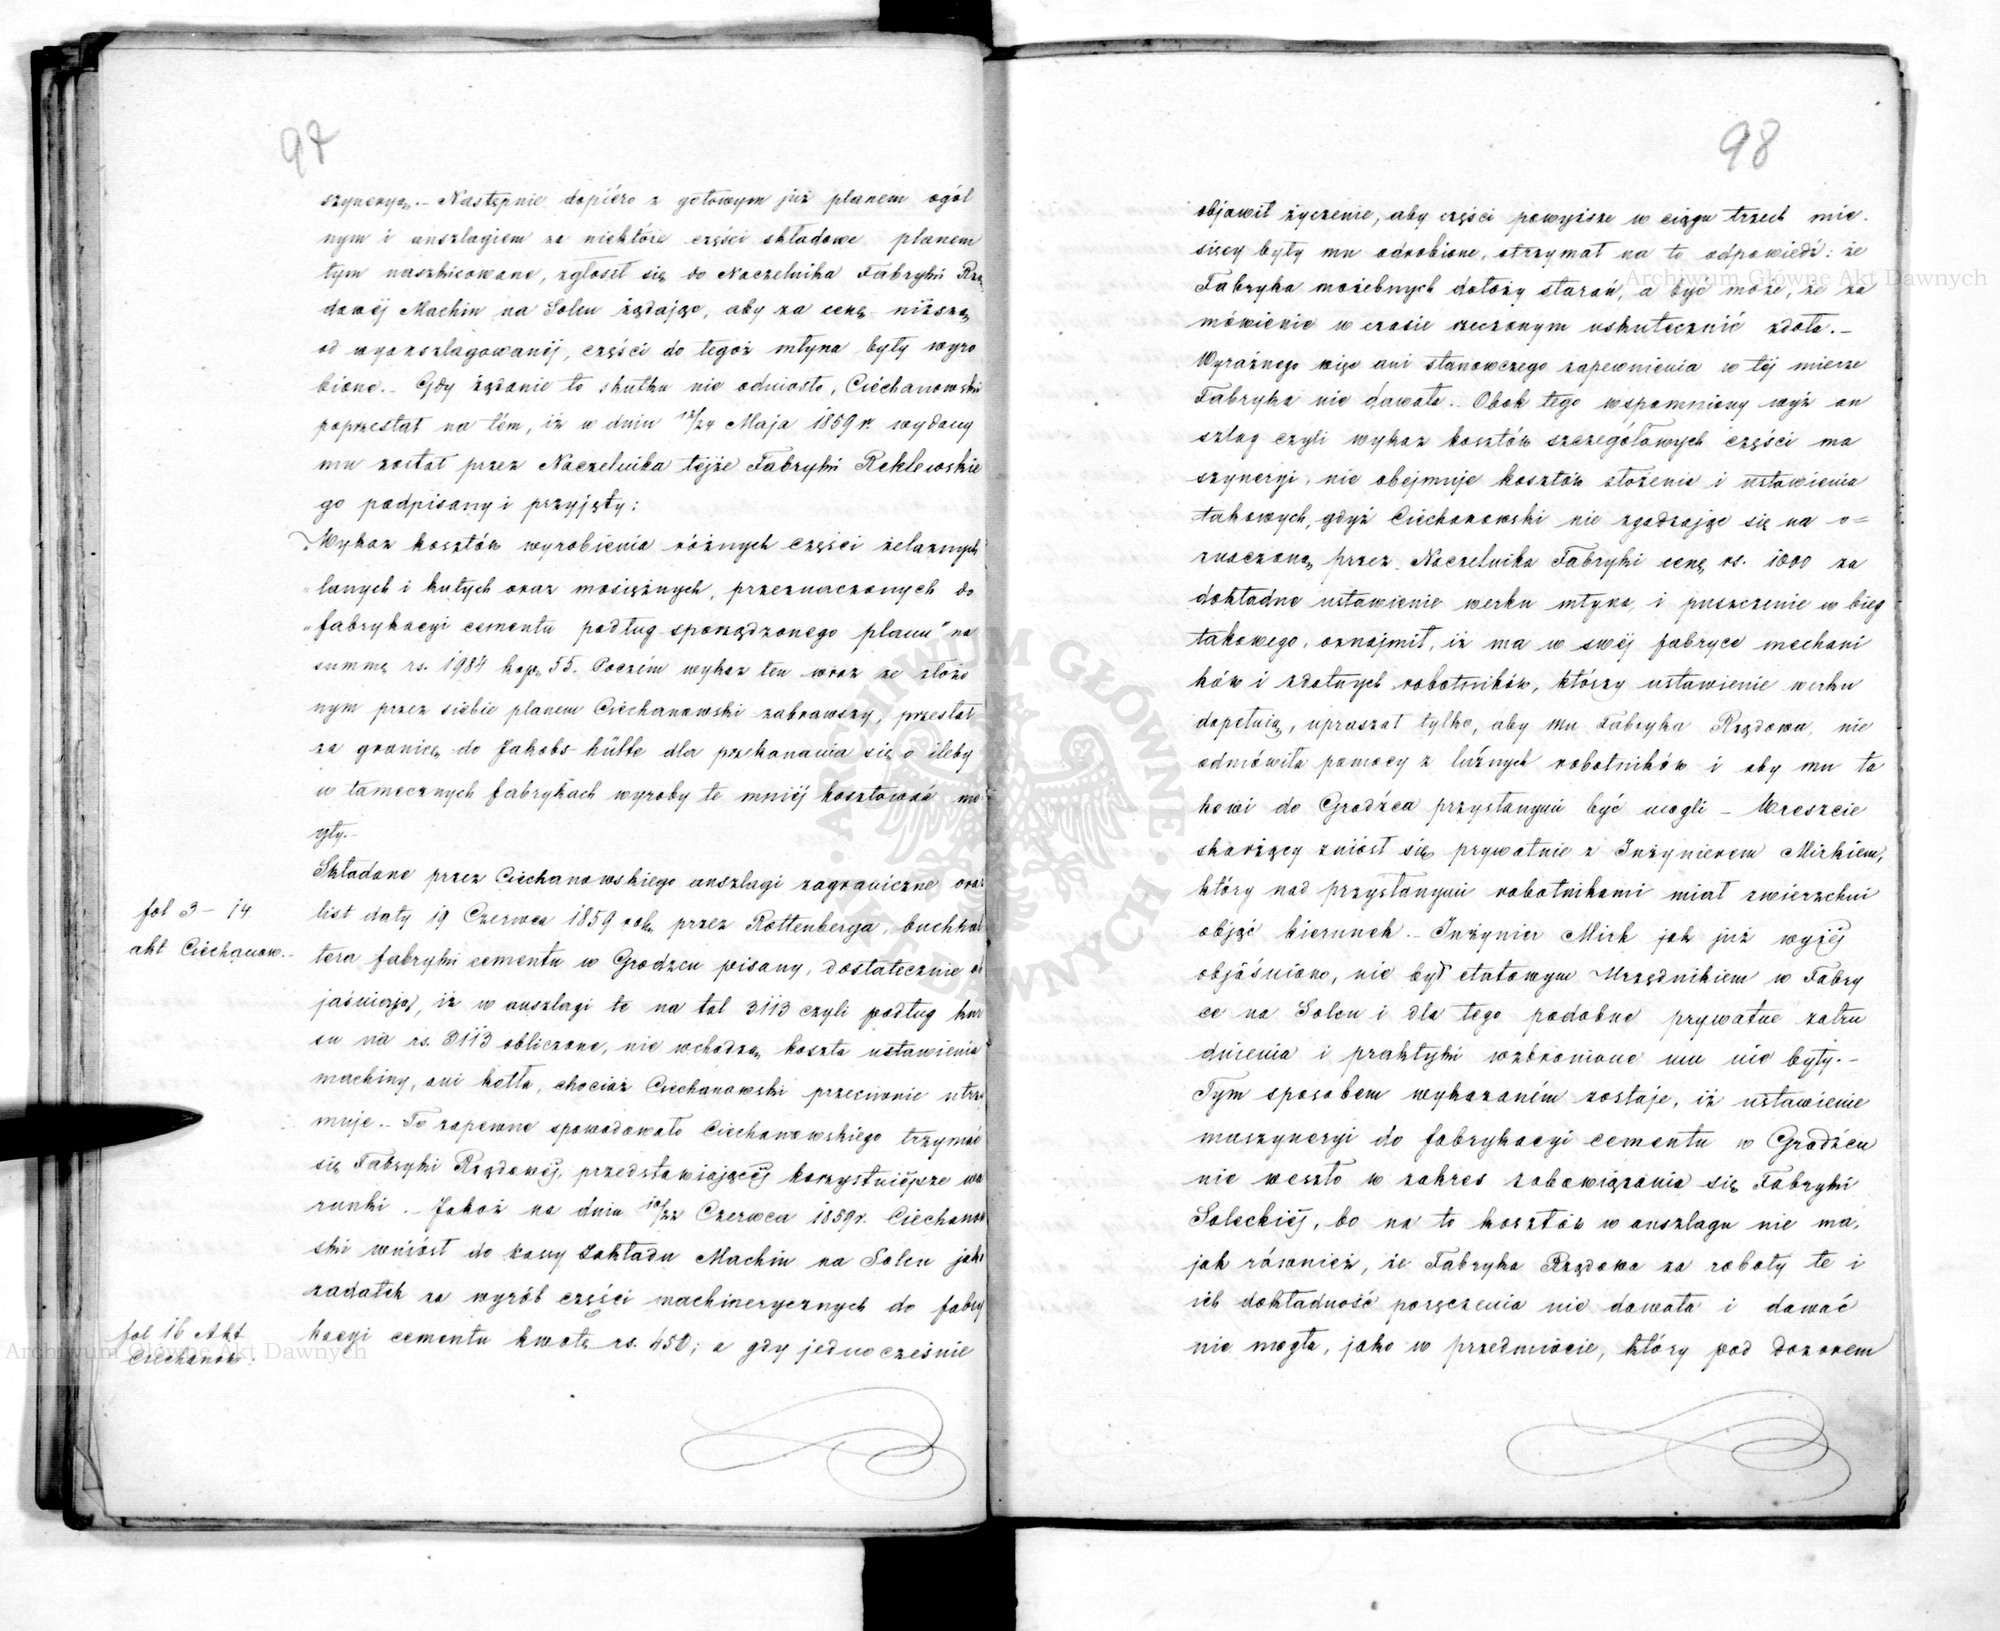 97
szyneryą.- Następnie dopiéro z gotowym już planem ogól
nym i anszlagiem za niektóre części składowe planem
tym naszkicowane, zgłosił się do Naczelnika Fabryki Rzą
dowéj Machin na Solcu żądając, aby za cenę niższą
od wyanszlagowanéj, części do tegoż młyna były wyro
bione.- Gdy żądanie to skutku nie odniosło, Ciéchanowski
poprzestał na tém, iż w dniu 12/24 Maja 1859 r. wydany
mu został przez Naczelnika tejże Fabryki Reklewskie
go podpisany i przyjęty:
„Wykaz kosztów wyrobienia różnych części żelaznych
„lanych i kutych oraz mosiężnych, przeznaczonych do
„fabrykacyi cementu podług sporządzonego planu" na
summę rs. 1984 kop. 55. Poczém wykaz ten wraz ze złożo
nym przez siebie planem Ciéchanowski zabrawszy, przesłał
za granicę do Jakobs-hütte dla przekonania się o ileby
w tamecznych fabrykach wyroby te mniéj kosztować mo
gły.-
Składane przez Ciechanowskiego anszlagi zagraniczne oraz
fol 3 - 14
list daty 19 Czerwca 1859 rok. przez Rottenberga, buchhal
akt Ciéchanow.-
tera fabryki cementu w Grodzcu pisany, dostatecznie ob
jaśniają, iż w anszlagi te na tal 3113 czyli podług kur
su na rs. 3113 obliczone, nie wchodzą koszta ustawienia
machiny, ani kotła, chociaż Ciechanowski przeciwnie utrzy
muje.- To zapewne spowodowało Ciechanowskiego trzymać
się Fabryki Rządowéj, przedstawiającéj korzystniéjsze wa
runki.- Jakoż na dniu 10/22 Czerwca 1859 r. Ciechanow
ski wniósł do kassy Zakładu Machin na Solcu jako
zadatek za wyrób części machinerycznych do fabry
fol 16 Akt
kacyi cementu kwotę rs. 450; a gdy jednocześnie
Ciechanow.
98
objawił życzenie, aby części powyższe w ciągu trzech mie-
sięcy były mu odrobione, otrzymał na to odpowiedź: że
Fabryka możebnych dołoży starań, a być może, że za
mówienie w czasie rzeczonym uskutecznić zdoła.-
Wyraźnego więc ani stanowczego zapewnienia w téj mierze
Fabryka nie dawała.- Obok tego wspomniony wyż an
szlag czyli wykaz kosztów szczegółowych części ma
szyneryi, nie obejmuje kosztów złożenia i ustawienia
takowych, gdyż Ciéchanowski nie zgadzając się na o=
znaczoną przez Naczelnika Fabryki cenę rs. 1000 za
dokładne ustawienie werku młyna i puszczenie w bieg
takowego, oznajmił, iż ma w swéj fabryce mechani
ków i zdolnych robotników, którzy ustawienie werku
dopełnią, upraszał tylko, aby mu Fabryka Rządowa, nie
odmówiła pomocy z luźnych robotników i aby mu ta
kowi do Grodźca przysłanymi być mogli - Wreszcie
skarżący zniósł się prywatnie z Inżynierem Mirkiem,
który nad przysłanymi robotnikami miał zwierzchni
objąć kierunek.- Inżynier Mirk jak już wyżéj
objaśniono, nie był etatowym Urzędnikiem w Fabry
ce na Solcu i dla tego podobne prywatne zatru
dnienia i praktyki wzbronione mu nie były.-
Tym sposobem wykazaném zostaje, iż ustawienie
maszyneryi do fabrykacyi cementu w Grodźcu
nie weszło w zakres zobowiązania się Fabryki
Soleckiéj, bo na to kosztów w anszlagu nie ma,
jak również, że Fabryka Rządowa za roboty te i
ich dokładność poręczenia nie dawała i dawać
nie mogła, jako w przedmiocie, który pod dozorem
Archiwum Główne Akt Dawnych
Archiwum Główne Akt Dawnych
ARCHIWUM GŁÓWNE AKT DAWNYCH